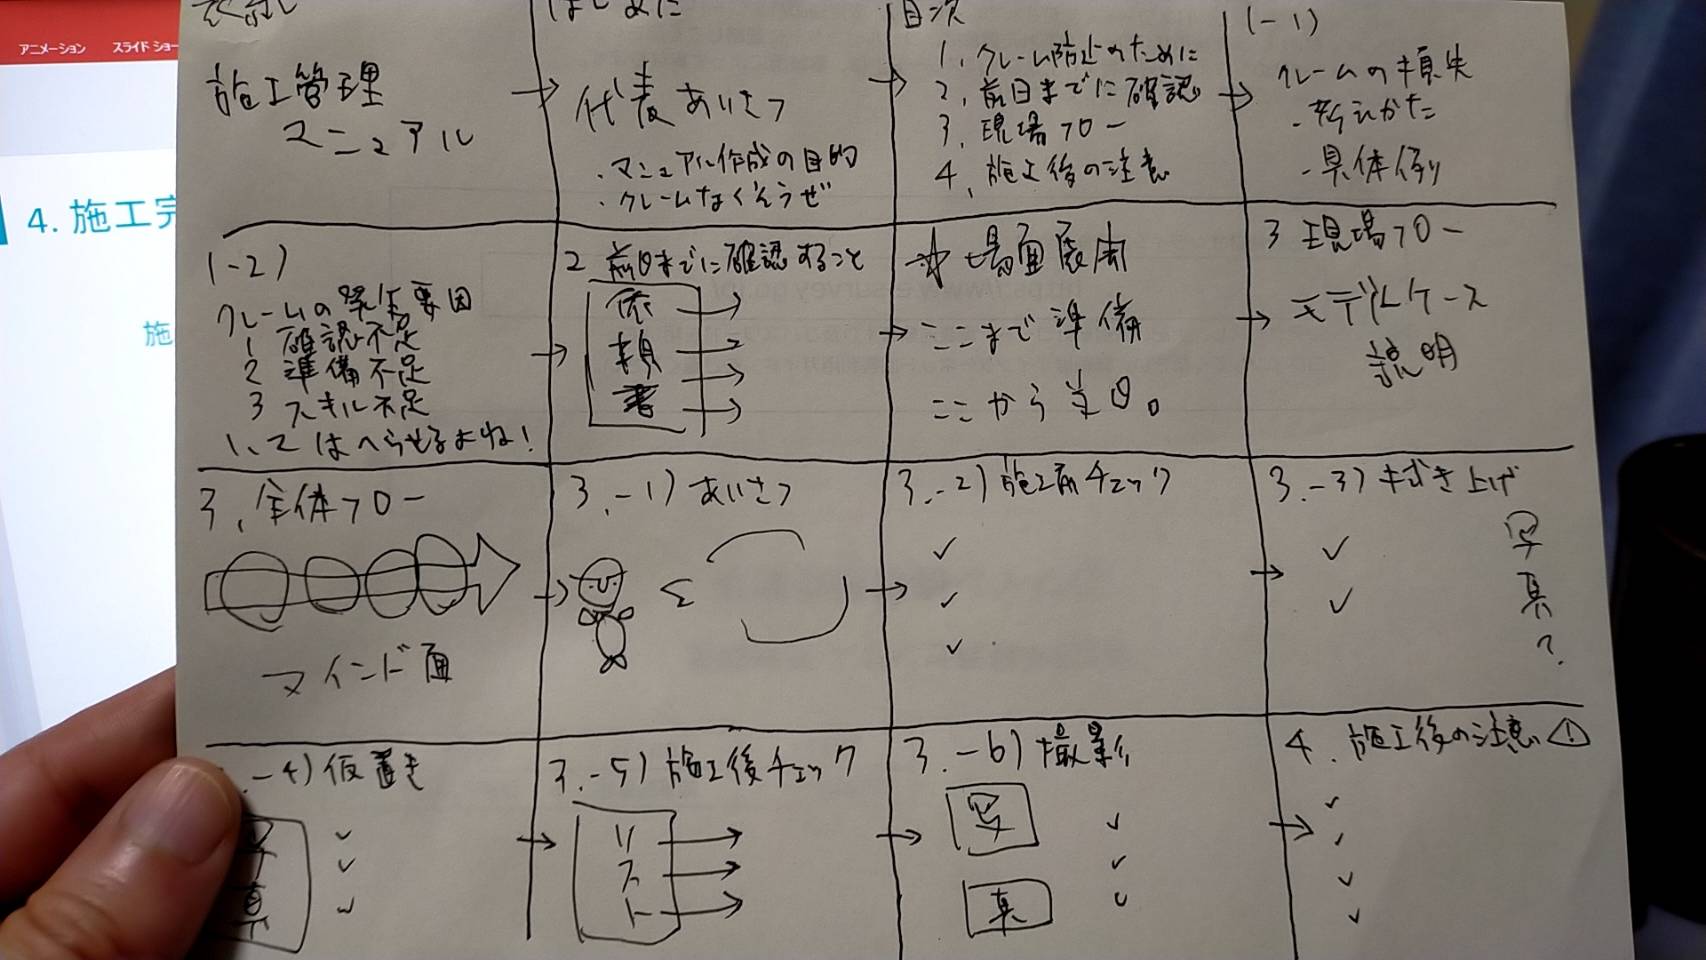 アニメーション
スライド ショー
4. 施工完
施
表紙
施工管理
マニュアル
はじめに
代表あいさつ
・マニュアル作成の目的
・クレームなくそうぜ
目次
1、クレーム防止のために
2、前日までに確認
3、現場フロー
4、施工後の注意
1-1)
クレームの損失
・考えかた
・具体例
1-2)
クレームの発生要因
1 確認不足
2 準備不足
3 スキル不足
1、2はへらせるよね!
2 前日までに確認すること
依
頼
書
☆場面展開
ここまで準備
ここから当日。
3 現場フロー
モデルケース
説明
3、全体フロー
マインド面
3.-1) あいさつ
3.-2) 施工前チェック
✓
✓
✓
3.-3) キズき上げ
✓
✓
写
真
?
.-4) 仮置き
真
✓
✓
✓
3.-5) 施工後チェック
リ
ス
ト
3.-6) 撮影
写
真
✓
✓
✓
4. 施工後の注意①
✓
✓
✓
✓